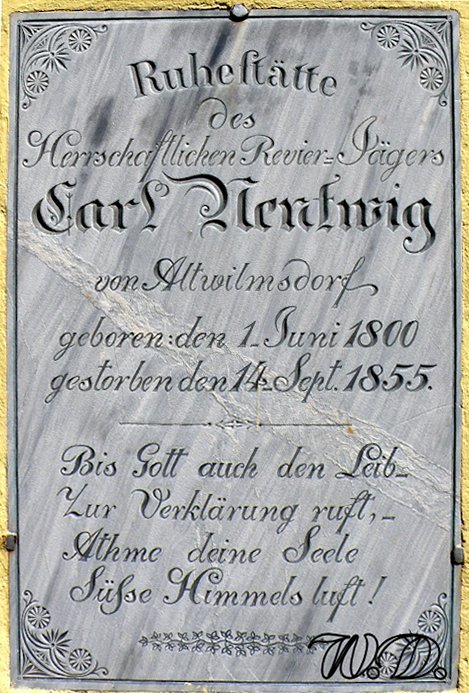 Ruhestätte
des
Herrschaftlichen Revier=Jägers
Carl Nentwig
von Altwilmsdorf
geboren: den 1. Juni 1800
gestorben den 14. Sept. 1855.
Bis Gott auch den Leib_
Zur Verklärung ruft,_
Athme deine Seele
Süsse Himmels luft!
W.D.